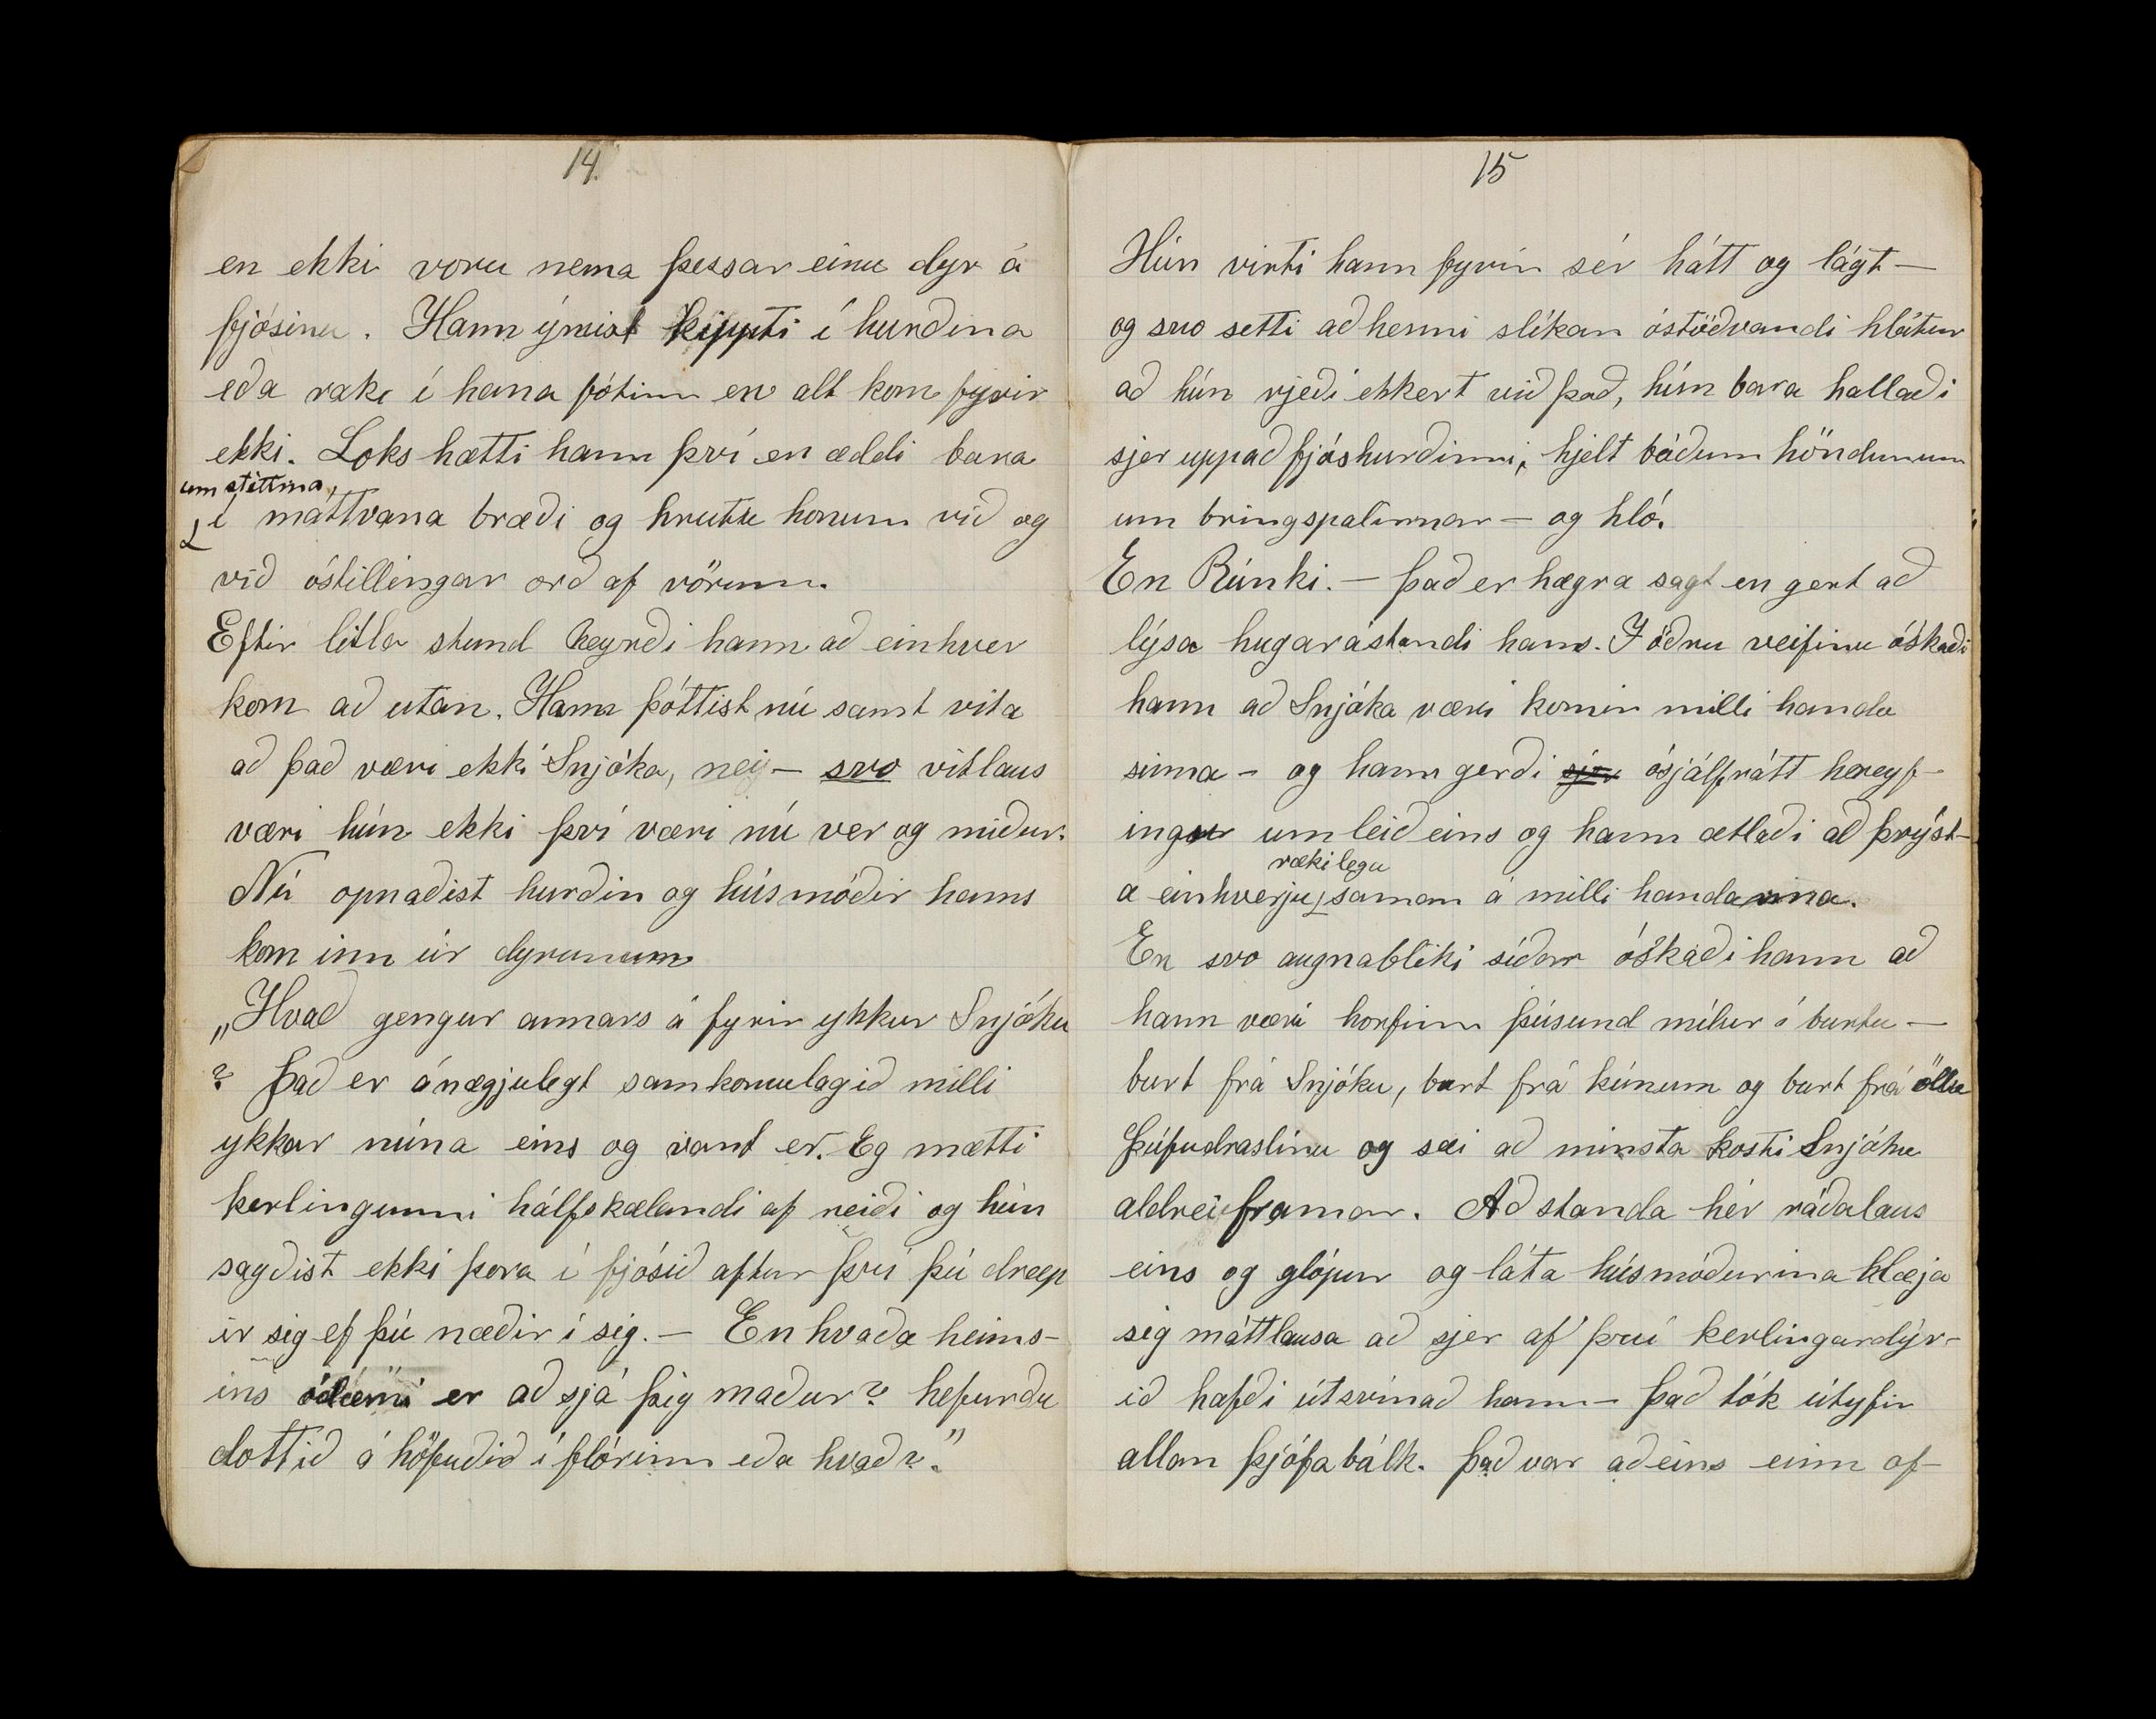 14.
en ekki voru nema þessar einu dyr á
fjósinu. Hann ýmist kippti í hurðina
eða rak í hana fótinn en alt kom fyrir
ekki. Loks hætti hann því en æddi bara
um stéttina,
í máttvana bræði og hrutu honum við og
við óstillingar orð af vörum.
Eftir litla stund heyrði hann að einhver
kom að utan. Hann þóttist nú samt vita
að það væri ekki Snjóka, nei – svo vitlaus
væri hún ekki því væri nú ver og miður.
Nú opnaðist hurðin og húsmóðir hans
kom inn úr dyrunum
„Hvað gengur annars á fyrir ykkur Snjóku
? Það er ánægjulegt samkomulagið milli
ykkar núna eins og vant er. Eg mætti
kerlingunni hálfskælandi af reiði og hún
sagðist ekki þora í fjósið aftur því þú dræp
ir sig ef þú næðir í sig. – En hvaða heims-
ins ódæmi er að sjá þig maður? hefurðu
dottið á höfuðið í flórinn eða hvað?"
15
Hún virti hann fyrir sér hátt og lágt –
og svo setti að henni slíkan óstöðvandi hlátur
að hún rjeði ekkert við það, hún bara hallaði
sjer uppað fjóshurðinni, hjelt báðum höndunum
um bringspalirnar – og hló.
En Rúnki. – Það er hægra sagt en gert að
lýsa hugarástandi hans. Í öðru veifinu óskaði
hann að Snjóka væri komin milli handa
sinna – og hann gerði sjer ósjálfrátt hreyf-
ingu um leið eins og hann ætlaði að þrýst-
rækilegu
a einhverju saman á milli handanna.
En svo augnabliki síðar óskaði hann að
hann væri horfinn þúsund mílur í burtu –
burt frá Snjóku, burt frá kúnum og burt frá öllu
Þúfudraslinu og sæi að minsta kosti Snjóku
aldrei framar. Að standa hér ráðalaus
eins og glópur og láta húsmóðurina hlæja
sig máttlausa að sjer af því kerlingardýr-
ið hafði útsvínað hann – Það tók útyfir
allan þjófabálk. Það var aðeins einn af-